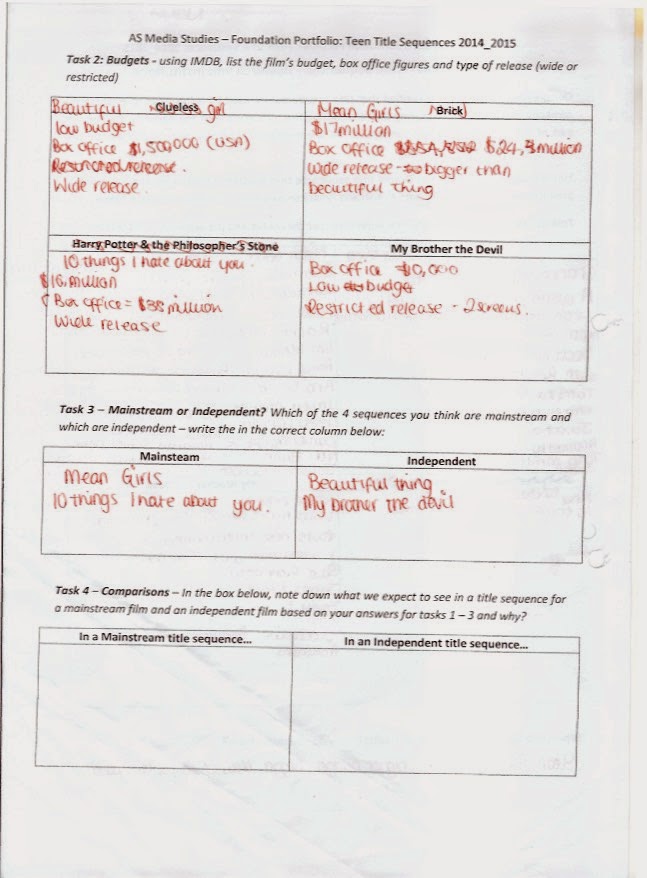 AS Media Studies – Foundation Portfolio: Teen Title Sequences 2014_2015
Task 2: Budgets - using IMDB, list the film's budget, box office figures and type of release (wide or
restricted)
Beautiful Clueless girl
low budget
Box office $1,500,000 (USA)
Restricted release.
Wide release.
Mean Girls Brick
$17 million
Box office $24,3 million
Wide release - bigger than
beautiful thing
Harry Potter & the Philosopher's Stone
10 things I hate about you.
$16 million
Box office = $38 million
Wide release
My Brother the Devil
Box office $0,000
Low budget
Restricted release - 2 screens.
Task 3 – Mainstream or Independent? Which of the 4 sequences you think are mainstream and
which are independent – write the in the correct column below:
Mainsteam
Mean Girls
10 things I hate about you.
Independent
Beautiful thing
My brother the devil
Task 4 – Comparisons – In the box below, note down what we expect to see in a title sequence for
a mainstream film and an independent film based on your answers for tasks 1 – 3 and why?
In a Mainstream title sequence...
In an Independent title sequence...